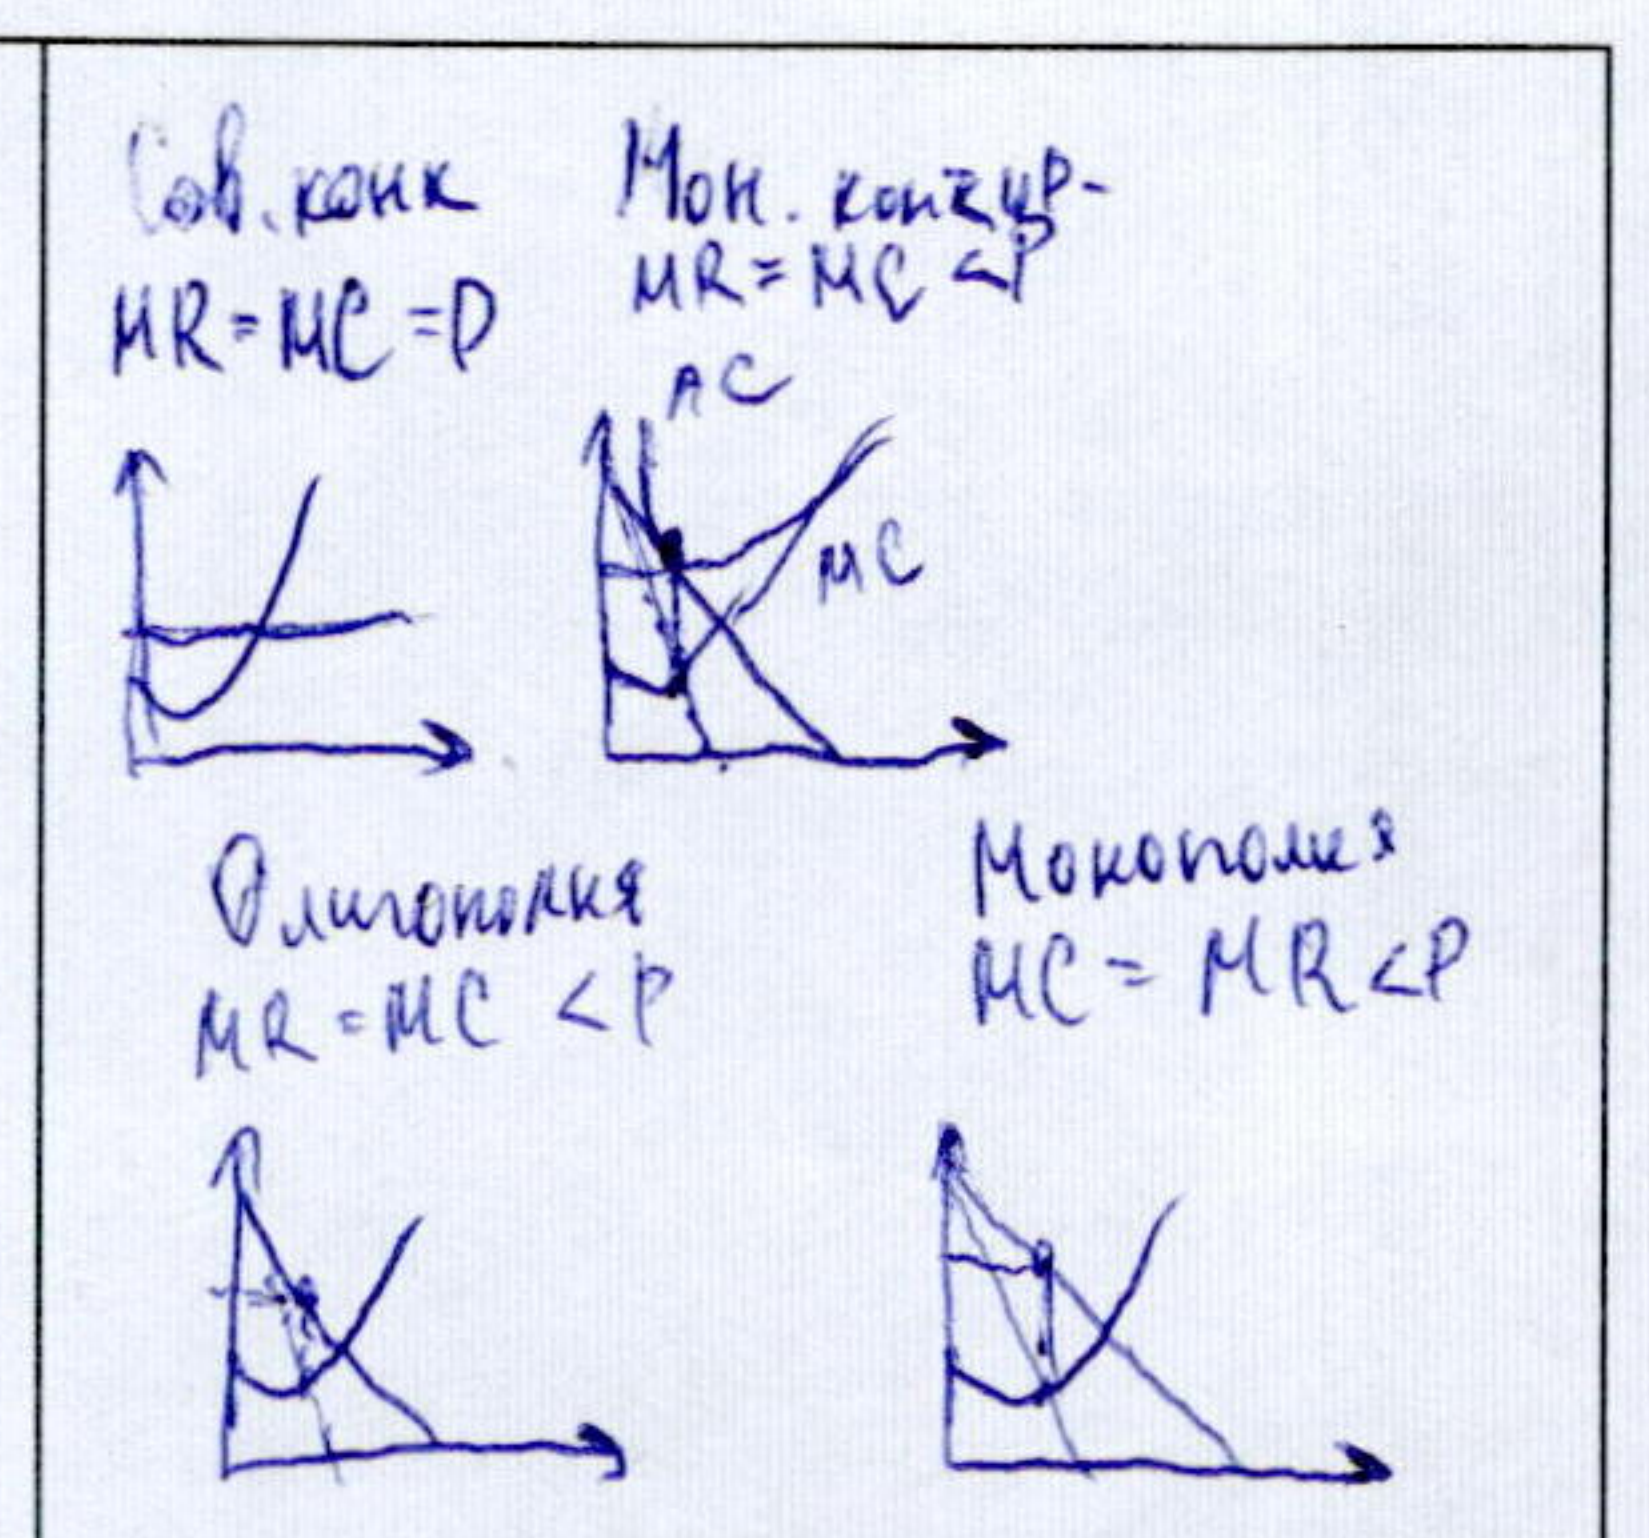 Сов. конк
MR = MC = P
Мон. конкур-
MR = MC < P
AC
MC
Олигополия
MR = MC < P
Монополия
MC = MR < P